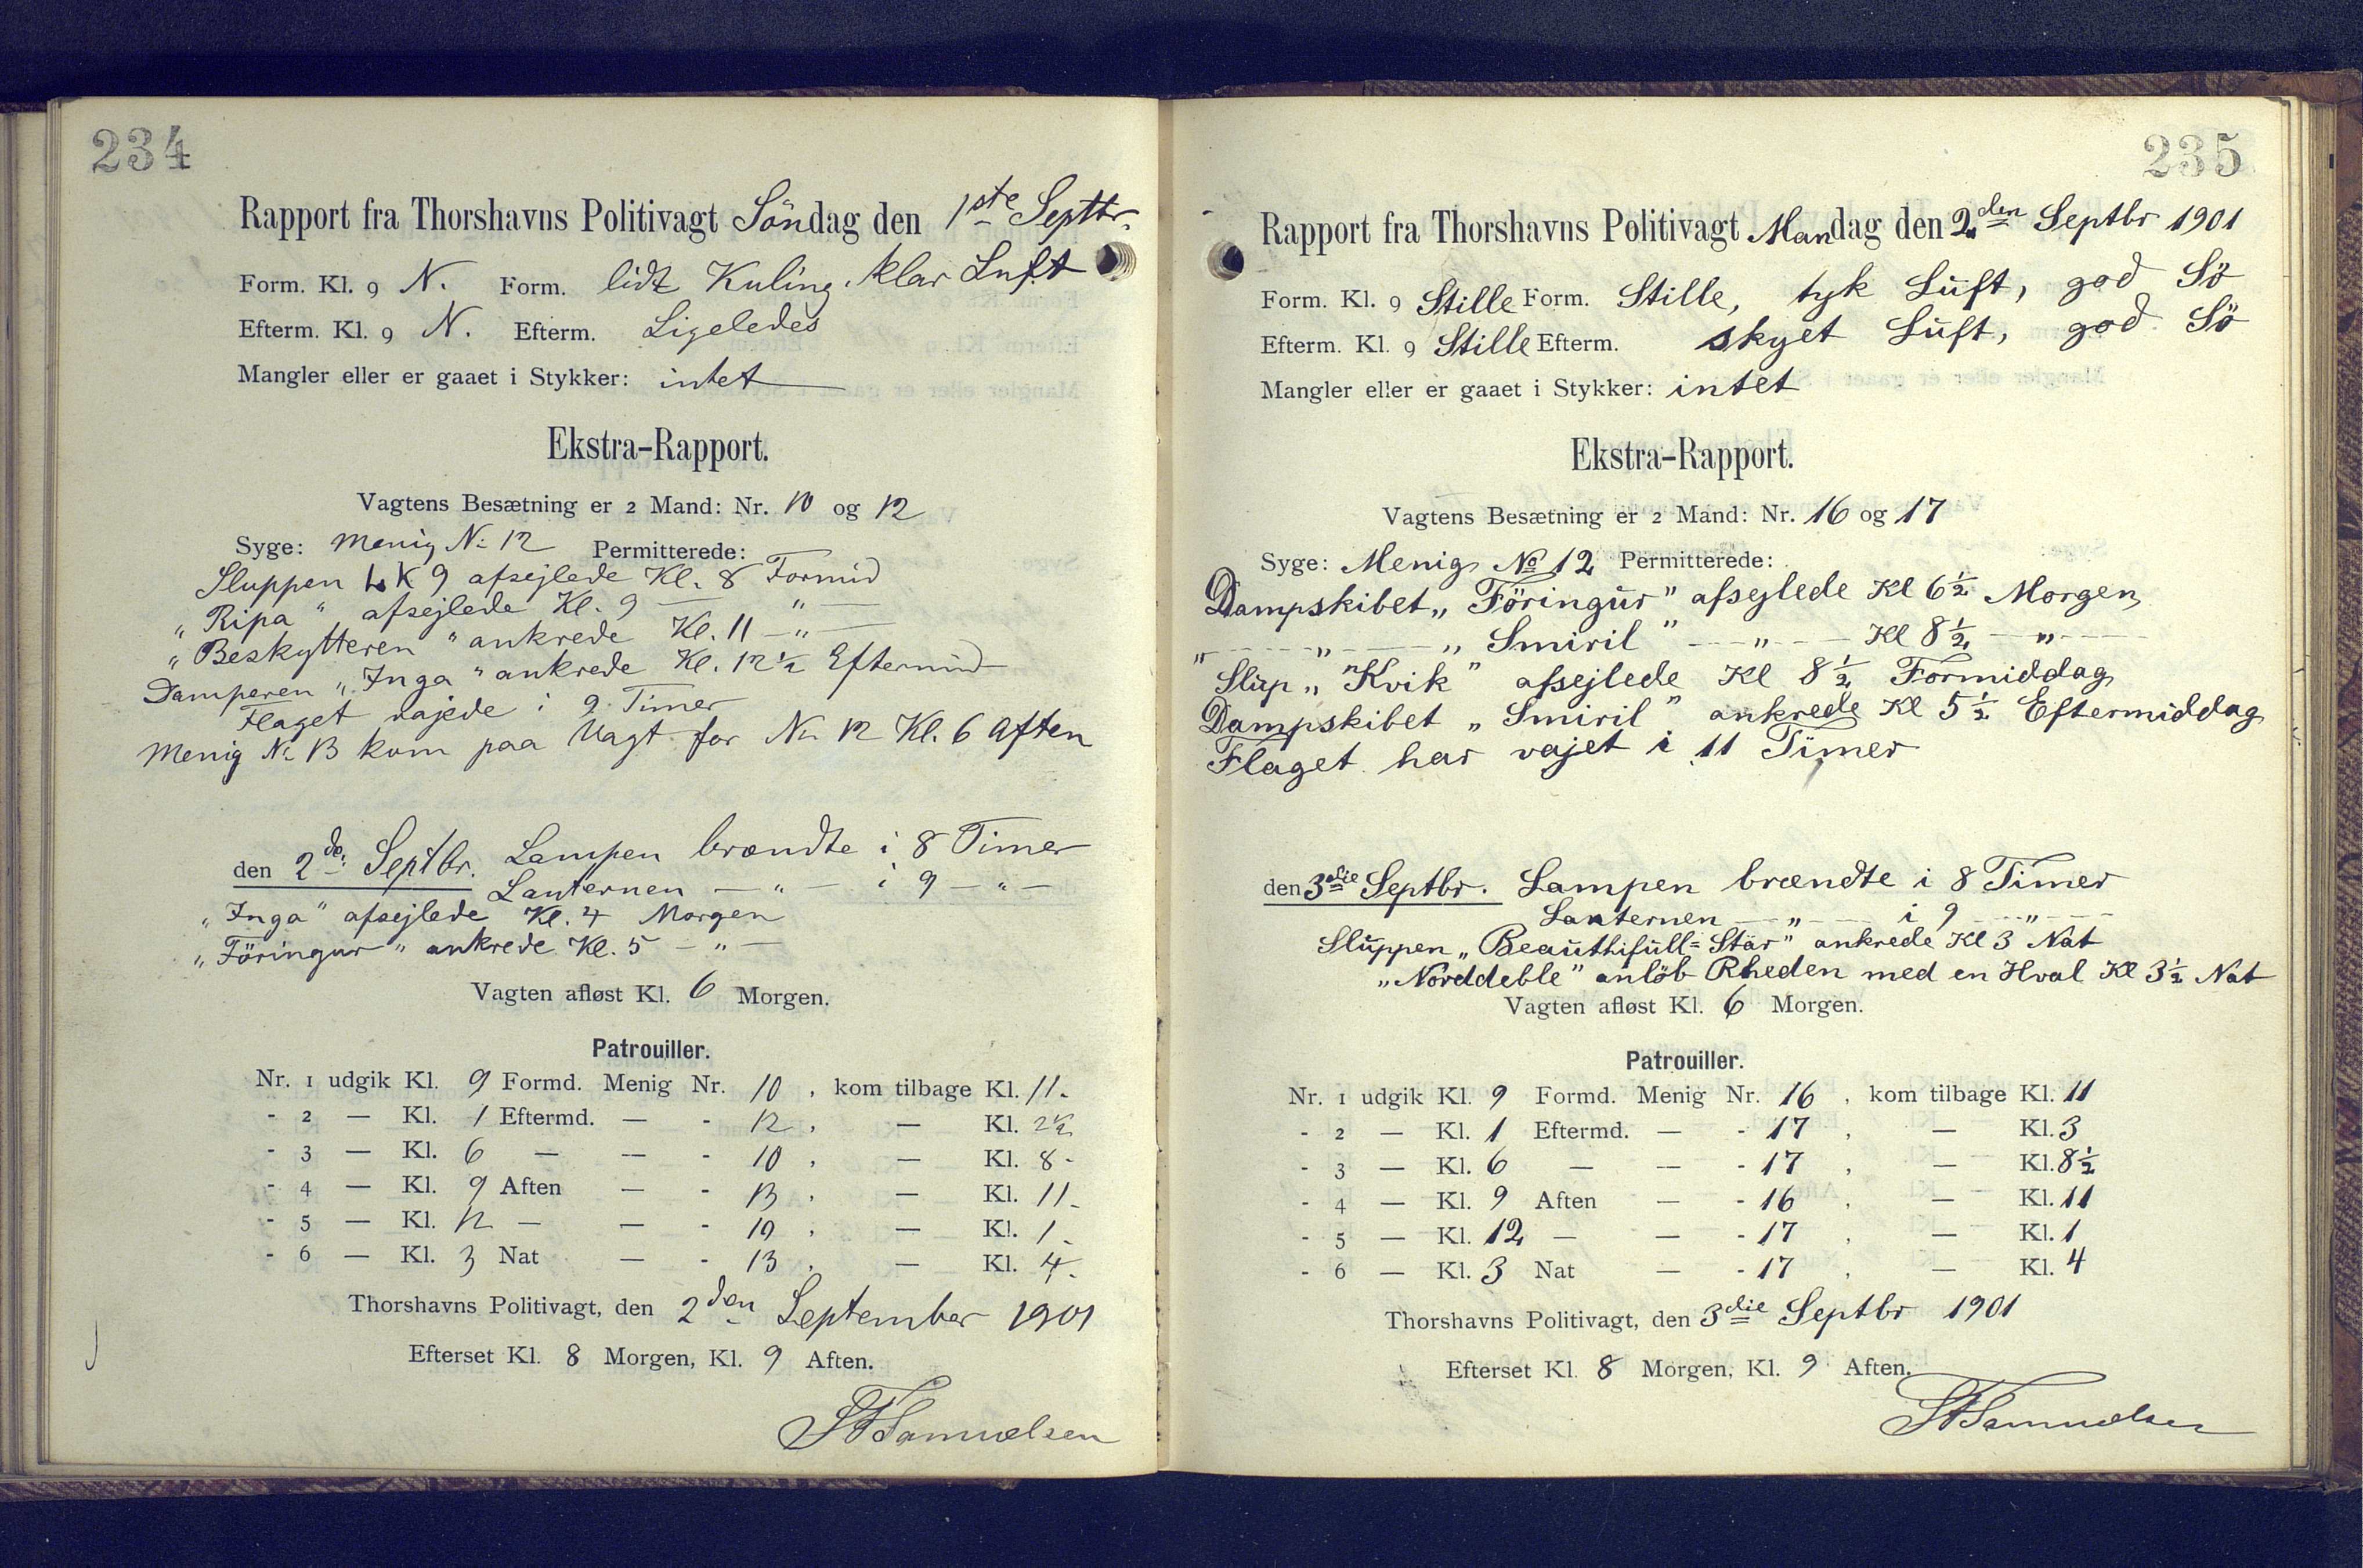 234
Rapport fra Thorshavns Politivagt Söndag den 1ste Septbr.
Form. Kl. 9 N. Form. lidt Kuling. klar Luft
Efterm. Kl. 9 N. Efterm. Ligeledes
Mangler eller er gaaet i Stykker: intet
Ekstra-Rapport.
Vagtens Besætning er 2 Mand: Nr. 10 og 12
Syge: Menig N: 12 Permitterede:
Sluppen L K 9 afsejlede Kl. 8 Formid
„ Ripa " afsejlede Kl. 9 — " —
„ Beskytteren " ankrede Kl. 11 — " —
Damperen „ Inga " ankrede Kl. 12½ Eftermid
Flaget vajede i 9 Timer
Menig N: 13 kom paa Vagt for N: 12 Kl. 6 Aften
den 2de: Septbr. Lampen brændte i 8 Timer
Lanternen — " — i 9 — " —
„ Inga " afsejlede Kl. 4 Morgen
„ Föringur " ankrede Kl. 5 — " —
Vagten afløst Kl. 6 Morgen.
Patrouiller.
Nr. 1 udgik Kl. 9 Formd. Menig Nr. 10 , kom tilbage Kl. 11.
- 2 — Kl. 1 Eftermd. — - 12 , — Kl. 2½
- 3 — Kl. 6 — — - 10 , — Kl. 8 -
- 4 — Kl. 9 Aften — - 13 , — Kl. 11 -
- 5 — Kl. 12 — — - 10 , — Kl. 1 -
- 6 — Kl. 3 Nat — - 13 , — Kl. 4 -
Thorshavns Politivagt, den 2den September 1901
Efterset Kl. 8 Morgen, Kl. 9 Aften.
Samuelsen
235
Rapport fra Thorshavns Politivagt Mandag den 2den Septbr 1901
Form. Kl. 9 Stille Form. Stille, tyk Luft, god Sö
Efterm. Kl. 9 Stille Efterm. skyet Luft, god Sö
Mangler eller er gaaet i Stykker: intet
Ekstra-Rapport.
Vagtens Besætning er 2 Mand: Nr. 16 og 17
Syge: Menig No 12 Permitterede:
Dampskibet „ Föringur " afsejlede Kl 6½ Morgen
" — " — „ Smiril " — " — Kl 8½ — " —
Slup „ Kvik " afsejlede Kl 8½ Formiddag
Dampskibet „ Smiril " ankrede Kl 5½ Eftermiddag
Flaget har vajet i 11 Timer
den 3die Septbr. Lampen brændte i 8 Timer
Lanternen — " — i 9 — " —
Sluppen „ Beauthifull=Stär " ankrede Kl 3 Nat
„ Norddeble " anløb Rheden med en Hval Kl 3½ Nat
Vagten afløst Kl. 6 Morgen.
Patrouiller.
Nr. 1 udgik Kl. 9 Formd. Menig Nr. 16 , kom tilbage Kl. 11
- 2 — Kl. 1 Eftermd. — - 17 , — Kl. 3
- 3 — Kl. 6 — — - 17 , — Kl. 8½
- 4 — Kl. 9 Aften — - 16 , — Kl. 11
- 5 — Kl. 12 — — - 17 , — Kl. 1
- 6 — Kl. 3 Nat — - 17 , — Kl. 4
Thorshavns Politivagt, den 3die Septbr 1901
Efterset Kl. 8 Morgen, Kl. 9 Aften.
Samuelsen